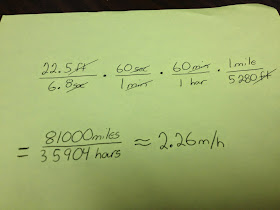 22.5ft/6.8sec · 60sec/1min · 60min/1har · 1mile/5280ft
= 81000miles/35904hars ≈ 2.26m/h